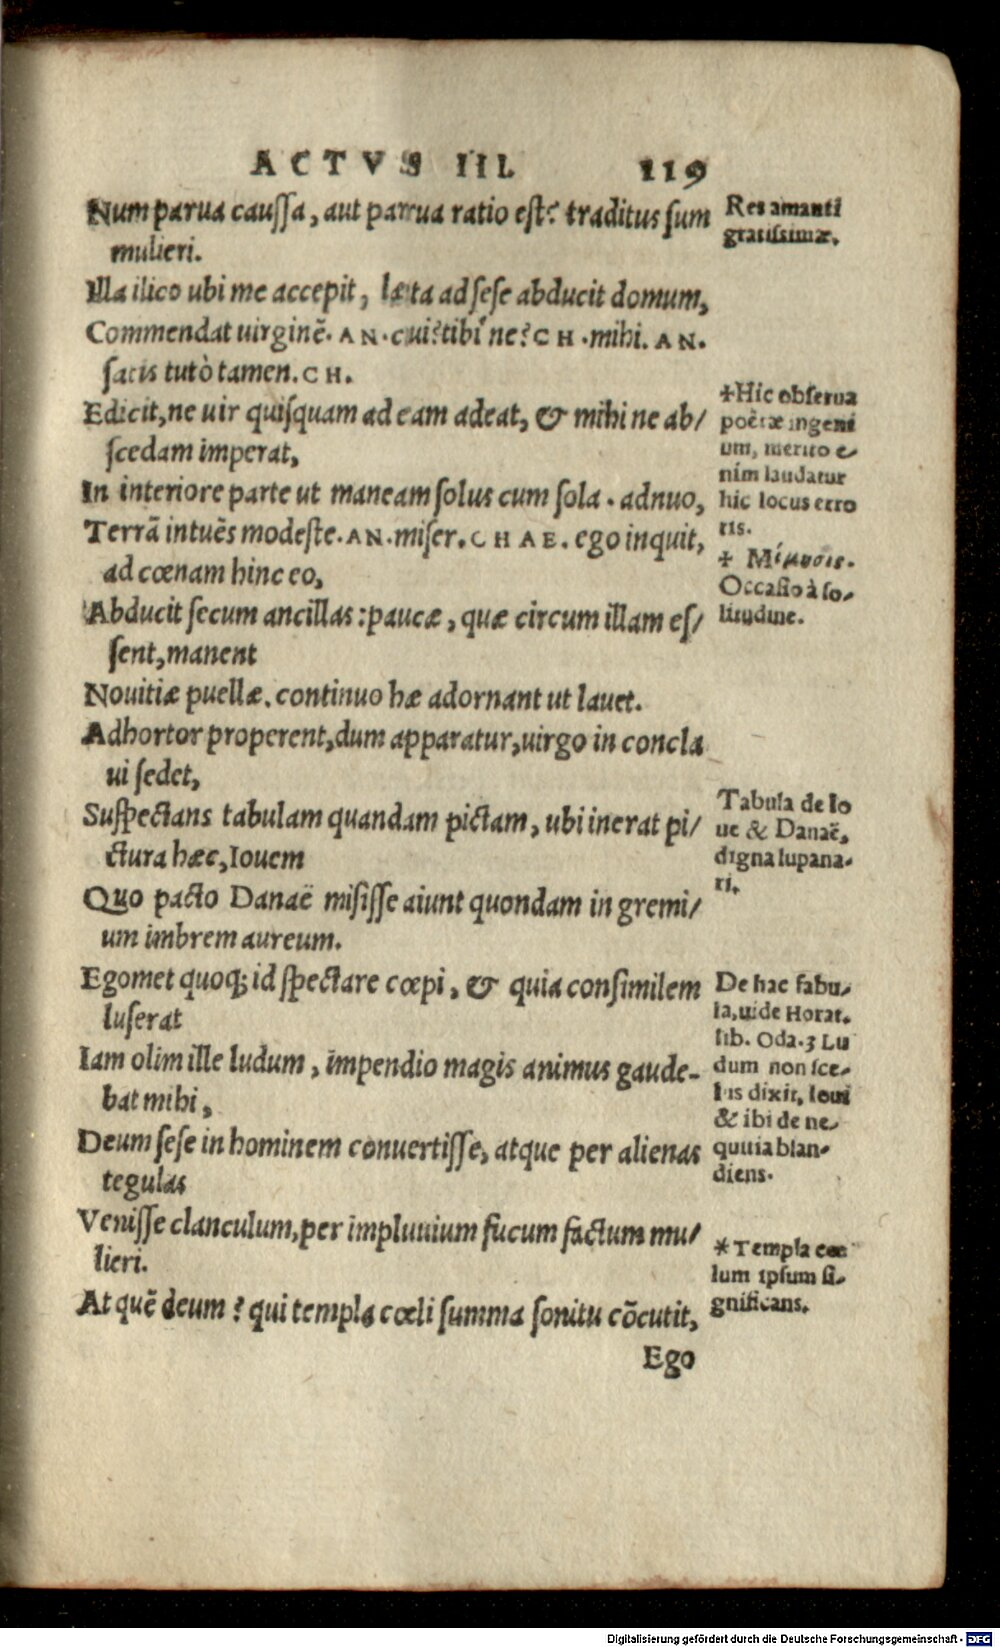 ACTVS III. 119
Num parua caussa, aut parua ratio est? traditus sum
mulieri.
Illa ilico ubi me accepit, læta ad sese abducit domum,
Commendat uirginē. AN. cui? tibi ne? CH. mihi. AN.
satis tutò tamen. CH.
Edicit, ne uir quisquam ad eam adeat, & mihi ne ab/
scedam imperat,
In interiore parte ut maneam solus cum sola. adnuo,
Terrā intuēs modeste. AN. miser. CHAE. ego inquit,
ad cœnam hinc eo,
Abducit secum ancillas: paucæ, quæ circum illam es/
sent, manent
Nouitiæ puellæ. continuo hæ adornant ut lauet.
Adhortor properent, dum apparatur, uirgo in concla
ui sedet,
Suspectans tabulam quandam pictam, ubi inerat pi/
ctura hæc, Iouem
Quo pacto Danaë misisse aiunt quondam in gremi/
um imbrem aureum.
Egomet quoq; id spectare cœpi, & quia consimilem
luserat
Iam olim ille ludum, impendio magis animus gaude-
bat mihi,
Deum sese in hominem conuertisse, atque per alienas
tegulas
Venisse clanculum, per impluuium fucum factum mu/
lieri.
At quē deum? qui templa cœli summa sonitu cōcutit,
Ego
Res amanti
gratissimæ.
+Hic obserua
poëtæ ingeni
um, merito e-
nim laudatur
hic locus erro
ris.
+ Μίμησις.
Occasio à so-
litudine.
Tabula de Io
ue & Danaë,
digna lupana-
ri.
De hac fabu-
la, uide Horat.
lib. Oda. 3 Lu
dum non sce-
lus dixit, Ioui
& ibi de ne-
quitia blan-
diens.
*Templa cœ
lum ipsum si-
gnificans.
Digitalisierung gefördert durch die Deutsche Forschungsgemeinschaft - DFG